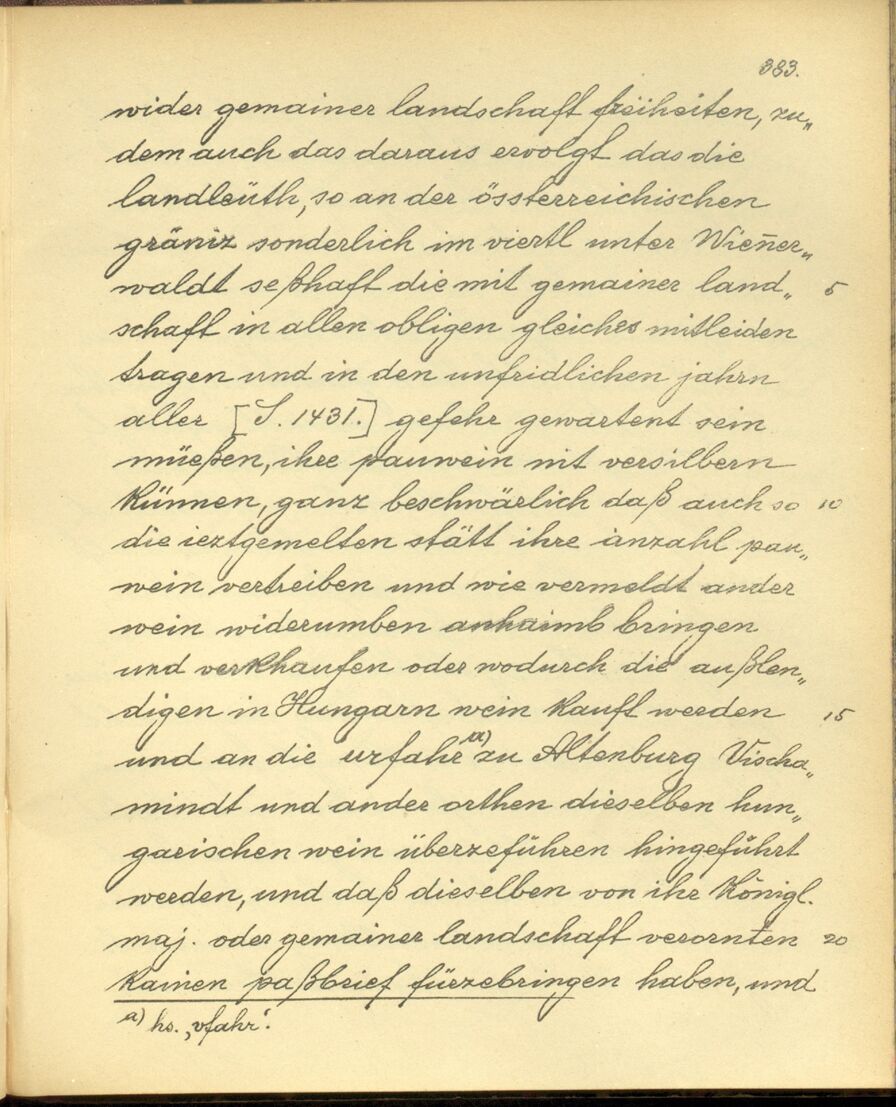 383.
wider gemainer landschaft freiheiten, zu„
dem auch das daraus ervolgt das die
landleüth, so an der össterreichischen
gräniz sonderlich im viertl unter Wien̄er„
waldt seßhaft die mit gemainer land„ 5
schaft in allen obligen gleiches mitleiden
tragen und in den unfridlichen jahrn
aller [S. 1431.] gefehr gewartent sein
müeßen, ihre pauwein nit versilbern
künnen, ganz beschwärlich daß auch so 10
die ieztgemelten stätt ihre anzahl pau„
wein vertreiben und wie vermeldt ander
wein widerumben anhaimb bringen
und verkhaufen oder wodurch die außlen„
digen in Hungarn wein kauft werden 15
und an die urfahr a) zu Altenburg Vischa„
mindt und ander orthen dieselben hun„
garischen wein überzeführen hingeführt
werden, und daß dieselben von ihr königl.
maj. oder gemainer landschaft verornten 20
kainen paßbrief fürzebringen haben, und
a) hs. ‚vfahr‘.